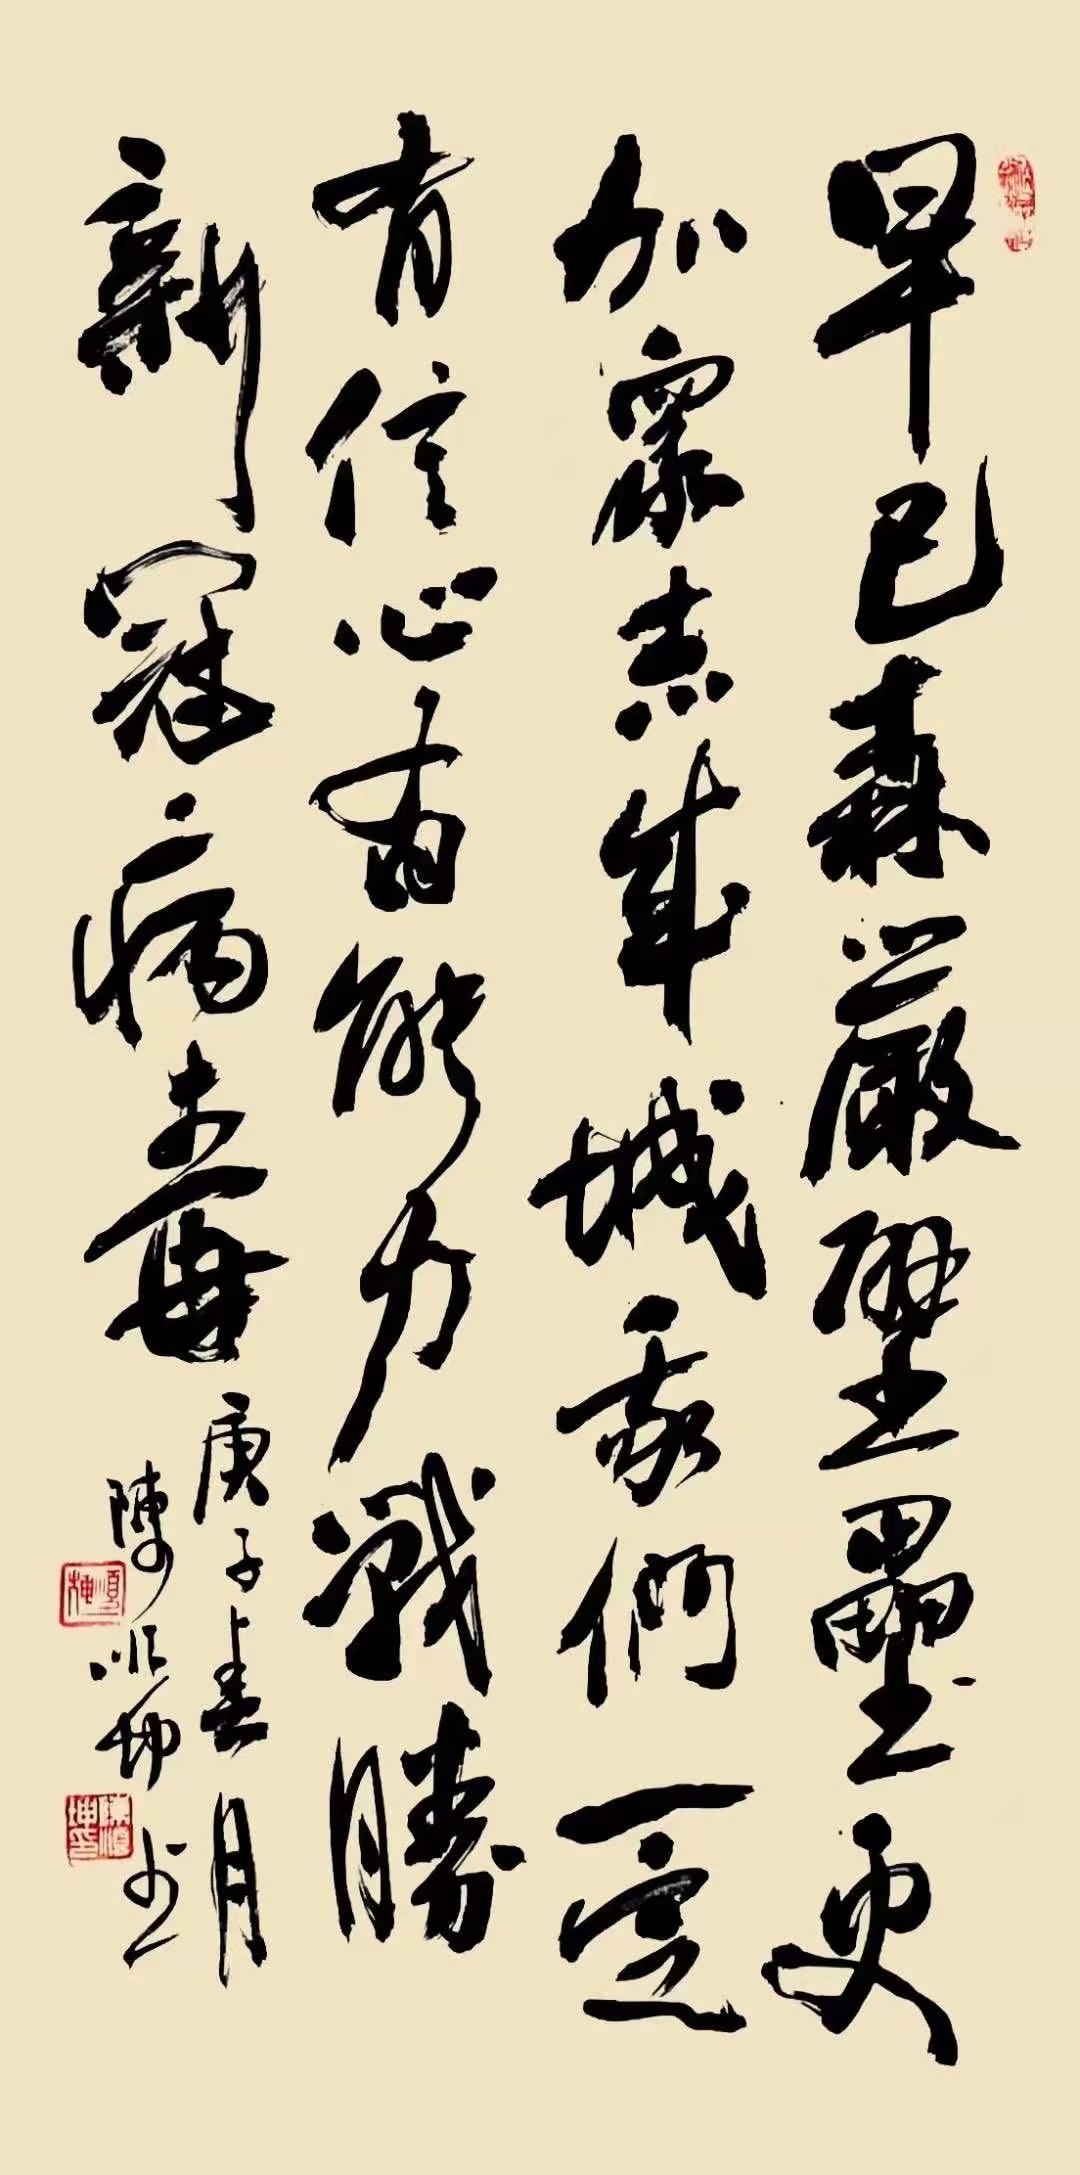 早已森嚴壁壘更
加眾志成城我們一定
有信心有能力戰勝
新冠病毒
庚子春月
陳順坤書
順坤
陳順坤印